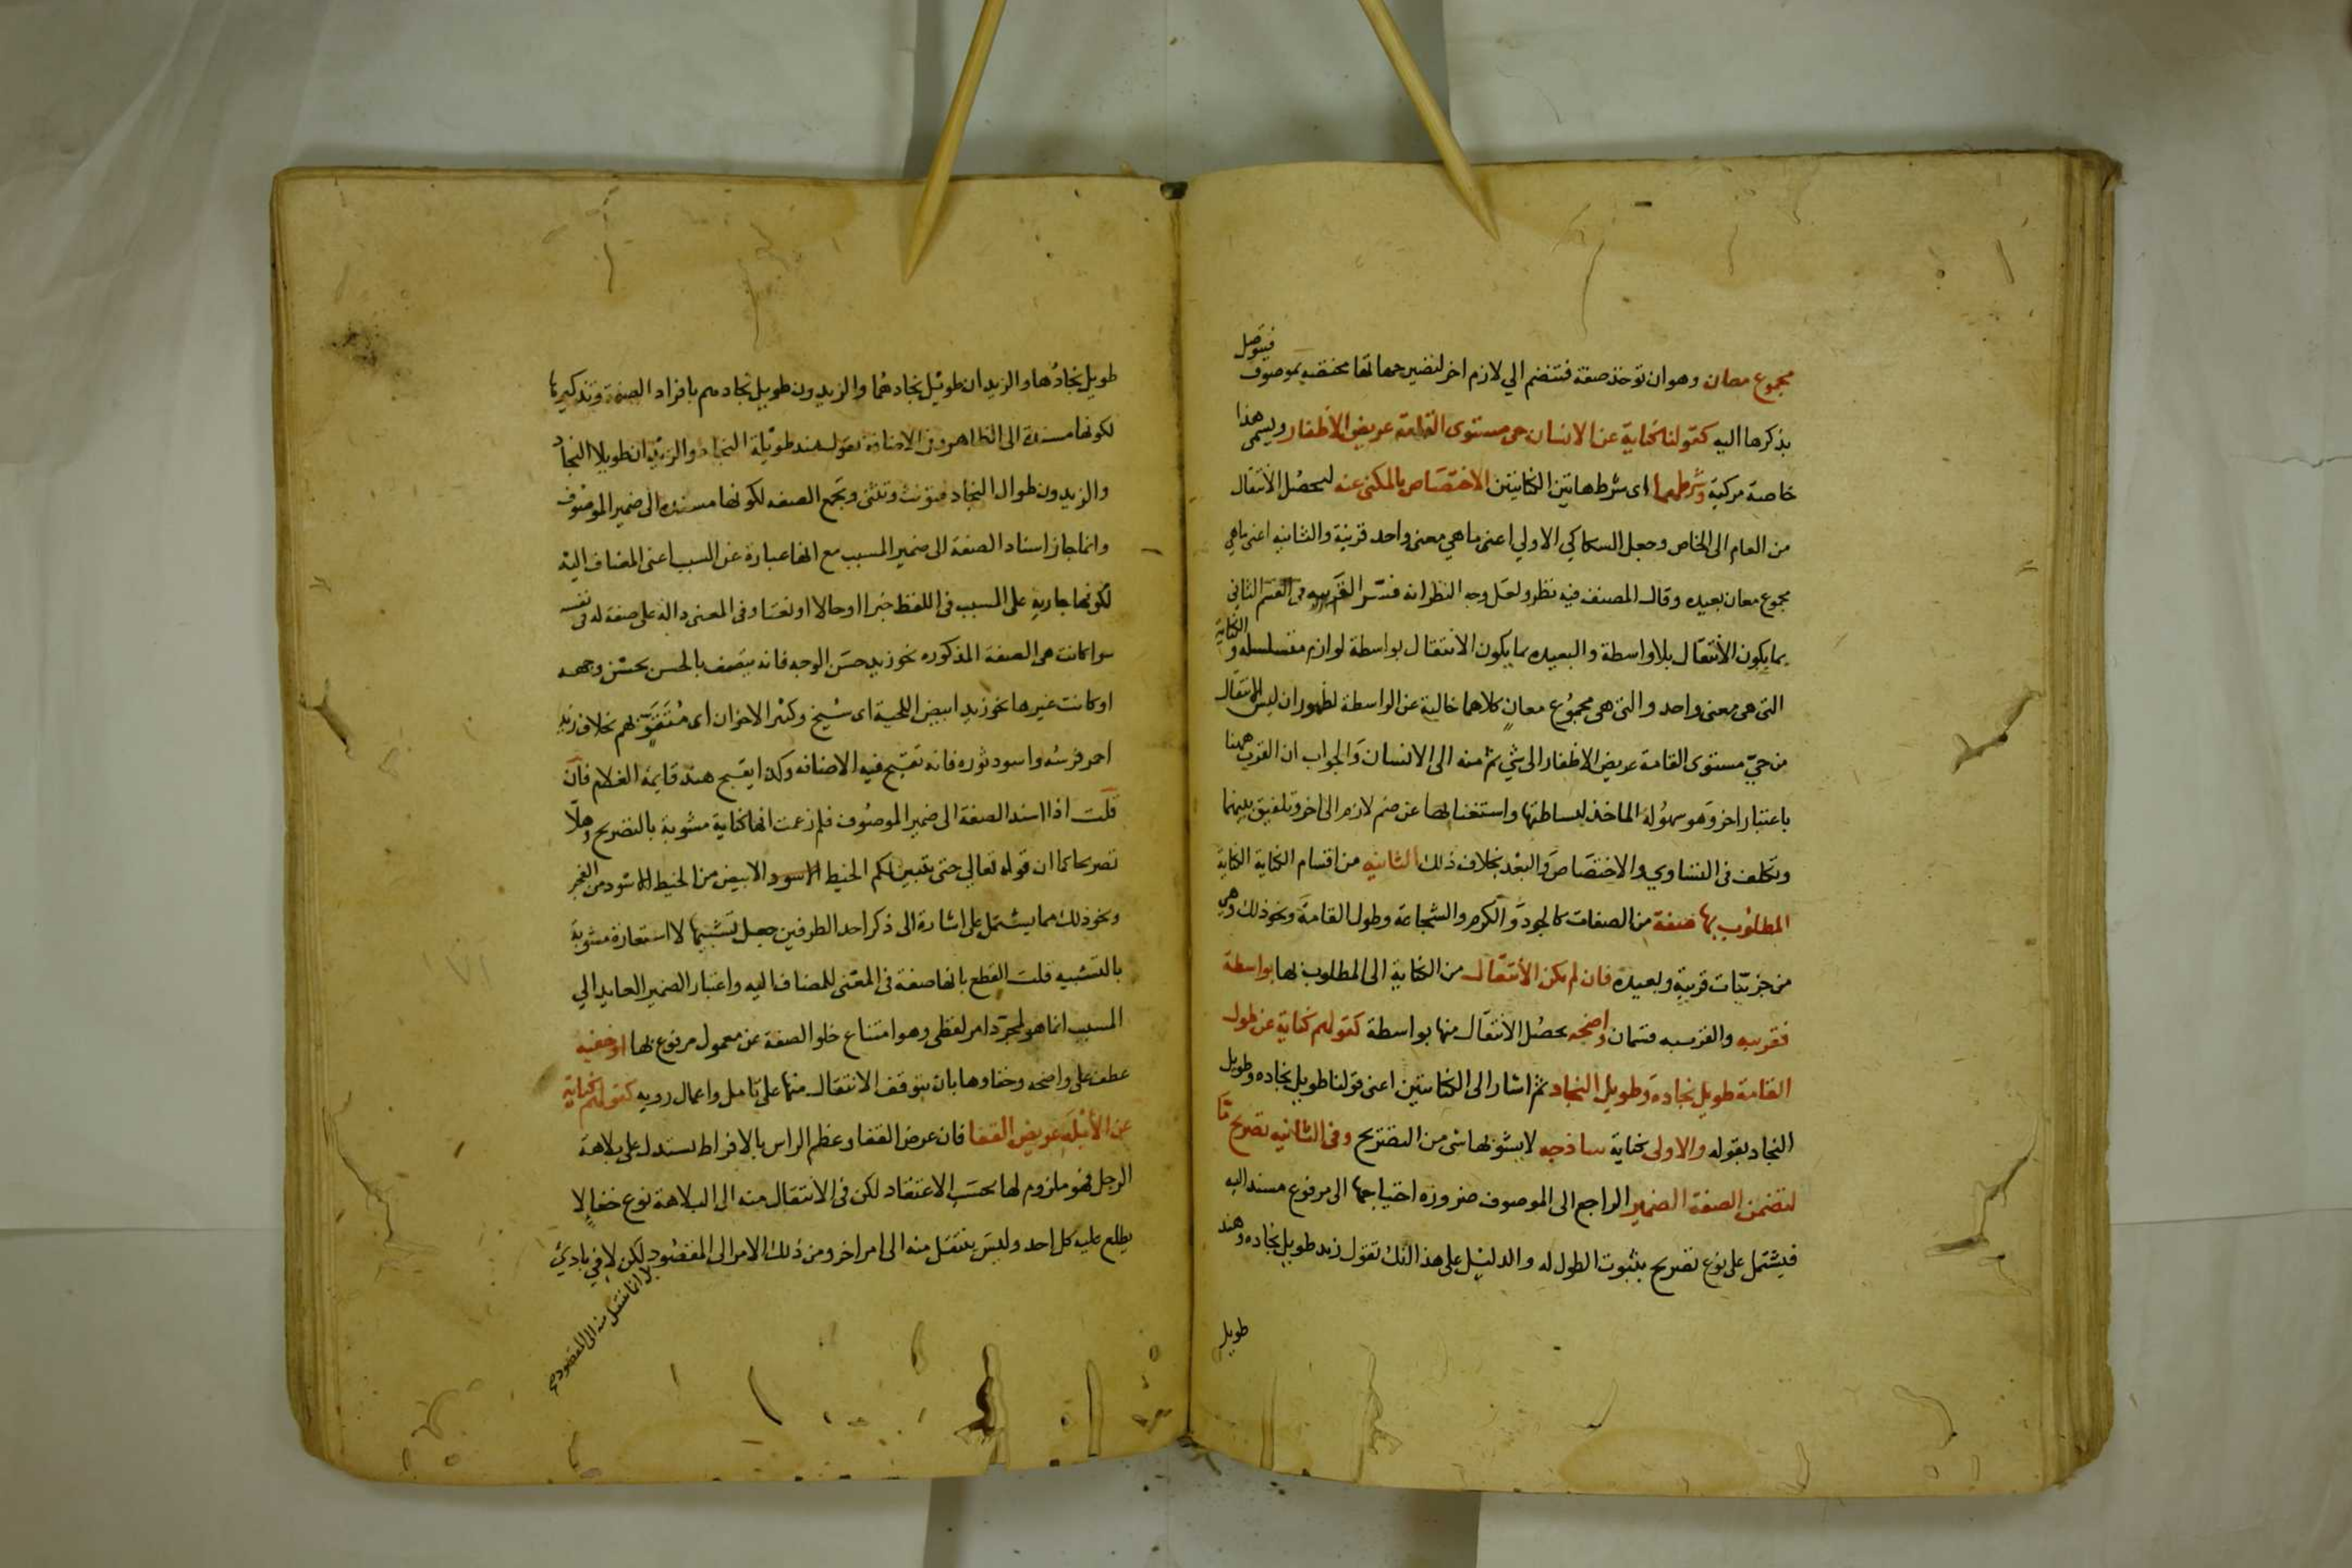 مجموع معان وهو ان توخذ صفة فتنضم الي لازم اخر لتضير جملتها مختصه بموصوف فيتوصل
بذكرها اليه كقولنا كناية عن الانسان حى مستوى القامة عريض الأظفار ويسمى هذا
خاصة مركبة وشرطهما اى شرط هاتين الكنايتين الاختصاص بالمكنى عنه ليحصُل الأنتقال
من العام الى الخاص وجعل السكاكي الاولي اعنى ما هي معنى واحد قريبة والثانيه اعنى ما هي
مجموع معان بعيده وقال المصنف فيه نظر ولعل وجه النظر انه فسّر القريبه فى القسم الثانى
بما يكون الأنتقال بلا واسطة والبعيده بما يكون الانتقال بواسطة لوازم متسلسله والكناية
التى هى معنى واحد والتى هى مجموُع معانٍ كلاهما خالية عن الواسطة لظهور ان ليس الانتقال
من حيّ مستوى القامة عريض الاظفار الى شي ثم منه الى الانسان والجواب ان القرب ههنا
باعتبار اخر وَهو سهوُلة الماخذ لبساطتها واستغنائها عن ضم لازم الى اخر وتلفيق بينهما
وتكلف فى التساوي والاختصَاص والبعْد بخلاف ذلك الثانيه من اقسام الكناية الكناية
المطلوُب بها صفة من الصفات كالجود وَالكرم والشجاعة وطول القامة ونحو ذلك وهي
من جزئيات قريبة وبعيدة فان لم يكن الأنتقال من الكناية الى المطلوب بها بواسطة
فقريبه والقريبه قسمان واضحه يحصُل الأنتقال منها بواسطة كقولهم كناية عن طول
القامة طويل نجاده وَطويل النجاد ثم اشار الى الكنايتين اعنى قولنا طويل نجاده وطويل
النجاد بقوله والاولى كناية ساذجه لا يشوبها شى من التصريح وفى الثانيه تصريح مّا
لتضمن الصفة الضمير الراجع الى الموصوف ضرورة احتياجها الى مرفوع مسند اليه
فيشتمل على نوع تصريح بثبوت الطول له والدليل على هذا انك تقول زيد طويل نجاده وهند
طويل
طويل نجادُها والزيدان طويل نجادهُما والزيدون طويل نجادهم بافراد الصفة وتذكيرها
لكونها مسندة الى الظاهر وفى الاضافة تقول هند طويلة النجاد والزيدان طويلا النجاد
والزيدون طوال النجاد فتؤنث وتثنى وتجمع الصفه لكونها مسنده الى ضمير الموصوف
وانما جاز اسناد الصفة الى ضمير المسبب مع انها عبارة عن السبب اعنى المضاف اليْه
لكونها جارية على المسبب فى اللفظ خبرا او حالا او نعتا وفى المعنى دالة على صفة له فى نفسه
سوا كانت هى الصفة المذكوره نحو زيد حسَن الوجه فانه يتصف بالحسن بحسْن وجهه
او كانت غيرها نحو زيد ابيض اللحية اى شيخ وكثير الاخوان اى مُتَقَوٍّ بهم بخلاف زيد
احمر فرسُه واسود ثوره فانه تقبيح فيه الاضافه وكذا يقبح هند قايمة الغلام فان
قلت اذا اسند الصفة الى ضمير الموصوُف فلم زعمت انها كناية مشوبة بالتصريح وهلّا
تصريحا كما ان قوله تعالي حتى يتبين لكم الخيط الاسود الابيض من الخيط الاسود من الفجر
ونحو ذلك مما يشتمل على اشارة الى ذكر احد الطرفين جعل تشبيها لا استعارة مشوبة
بالتشبيه قلت القطع بانها صفة فى المعْنى للمضاف اليه واعتبار الضمير العايد الي
المسبب انما هو لمجرّد امر لفظى وهو امتناع خلو الصفة عن معمول مرفوع بها او خفيه
عطف على واضحه وخفاوها بان يتوقف الانتقال منها على تامل واعمال رويه كقولهم كناية
عن الأبْلَه عريض القفا فان عرض القفا وعظم الراس بالافراط يستدل على بلاهة
الرجل فهو ملزوم لها بحسَب الاعتقاد لكن فى الانتقال منه الى البلاهة نوع خفاء لا
يطلع عليه كل احد وليسَ ينتقل منه الى امر اخر ومن ذلك الامر الى المقصُود لكن لا في بادئ
بل انما ينتقل منه الى المقصود صح